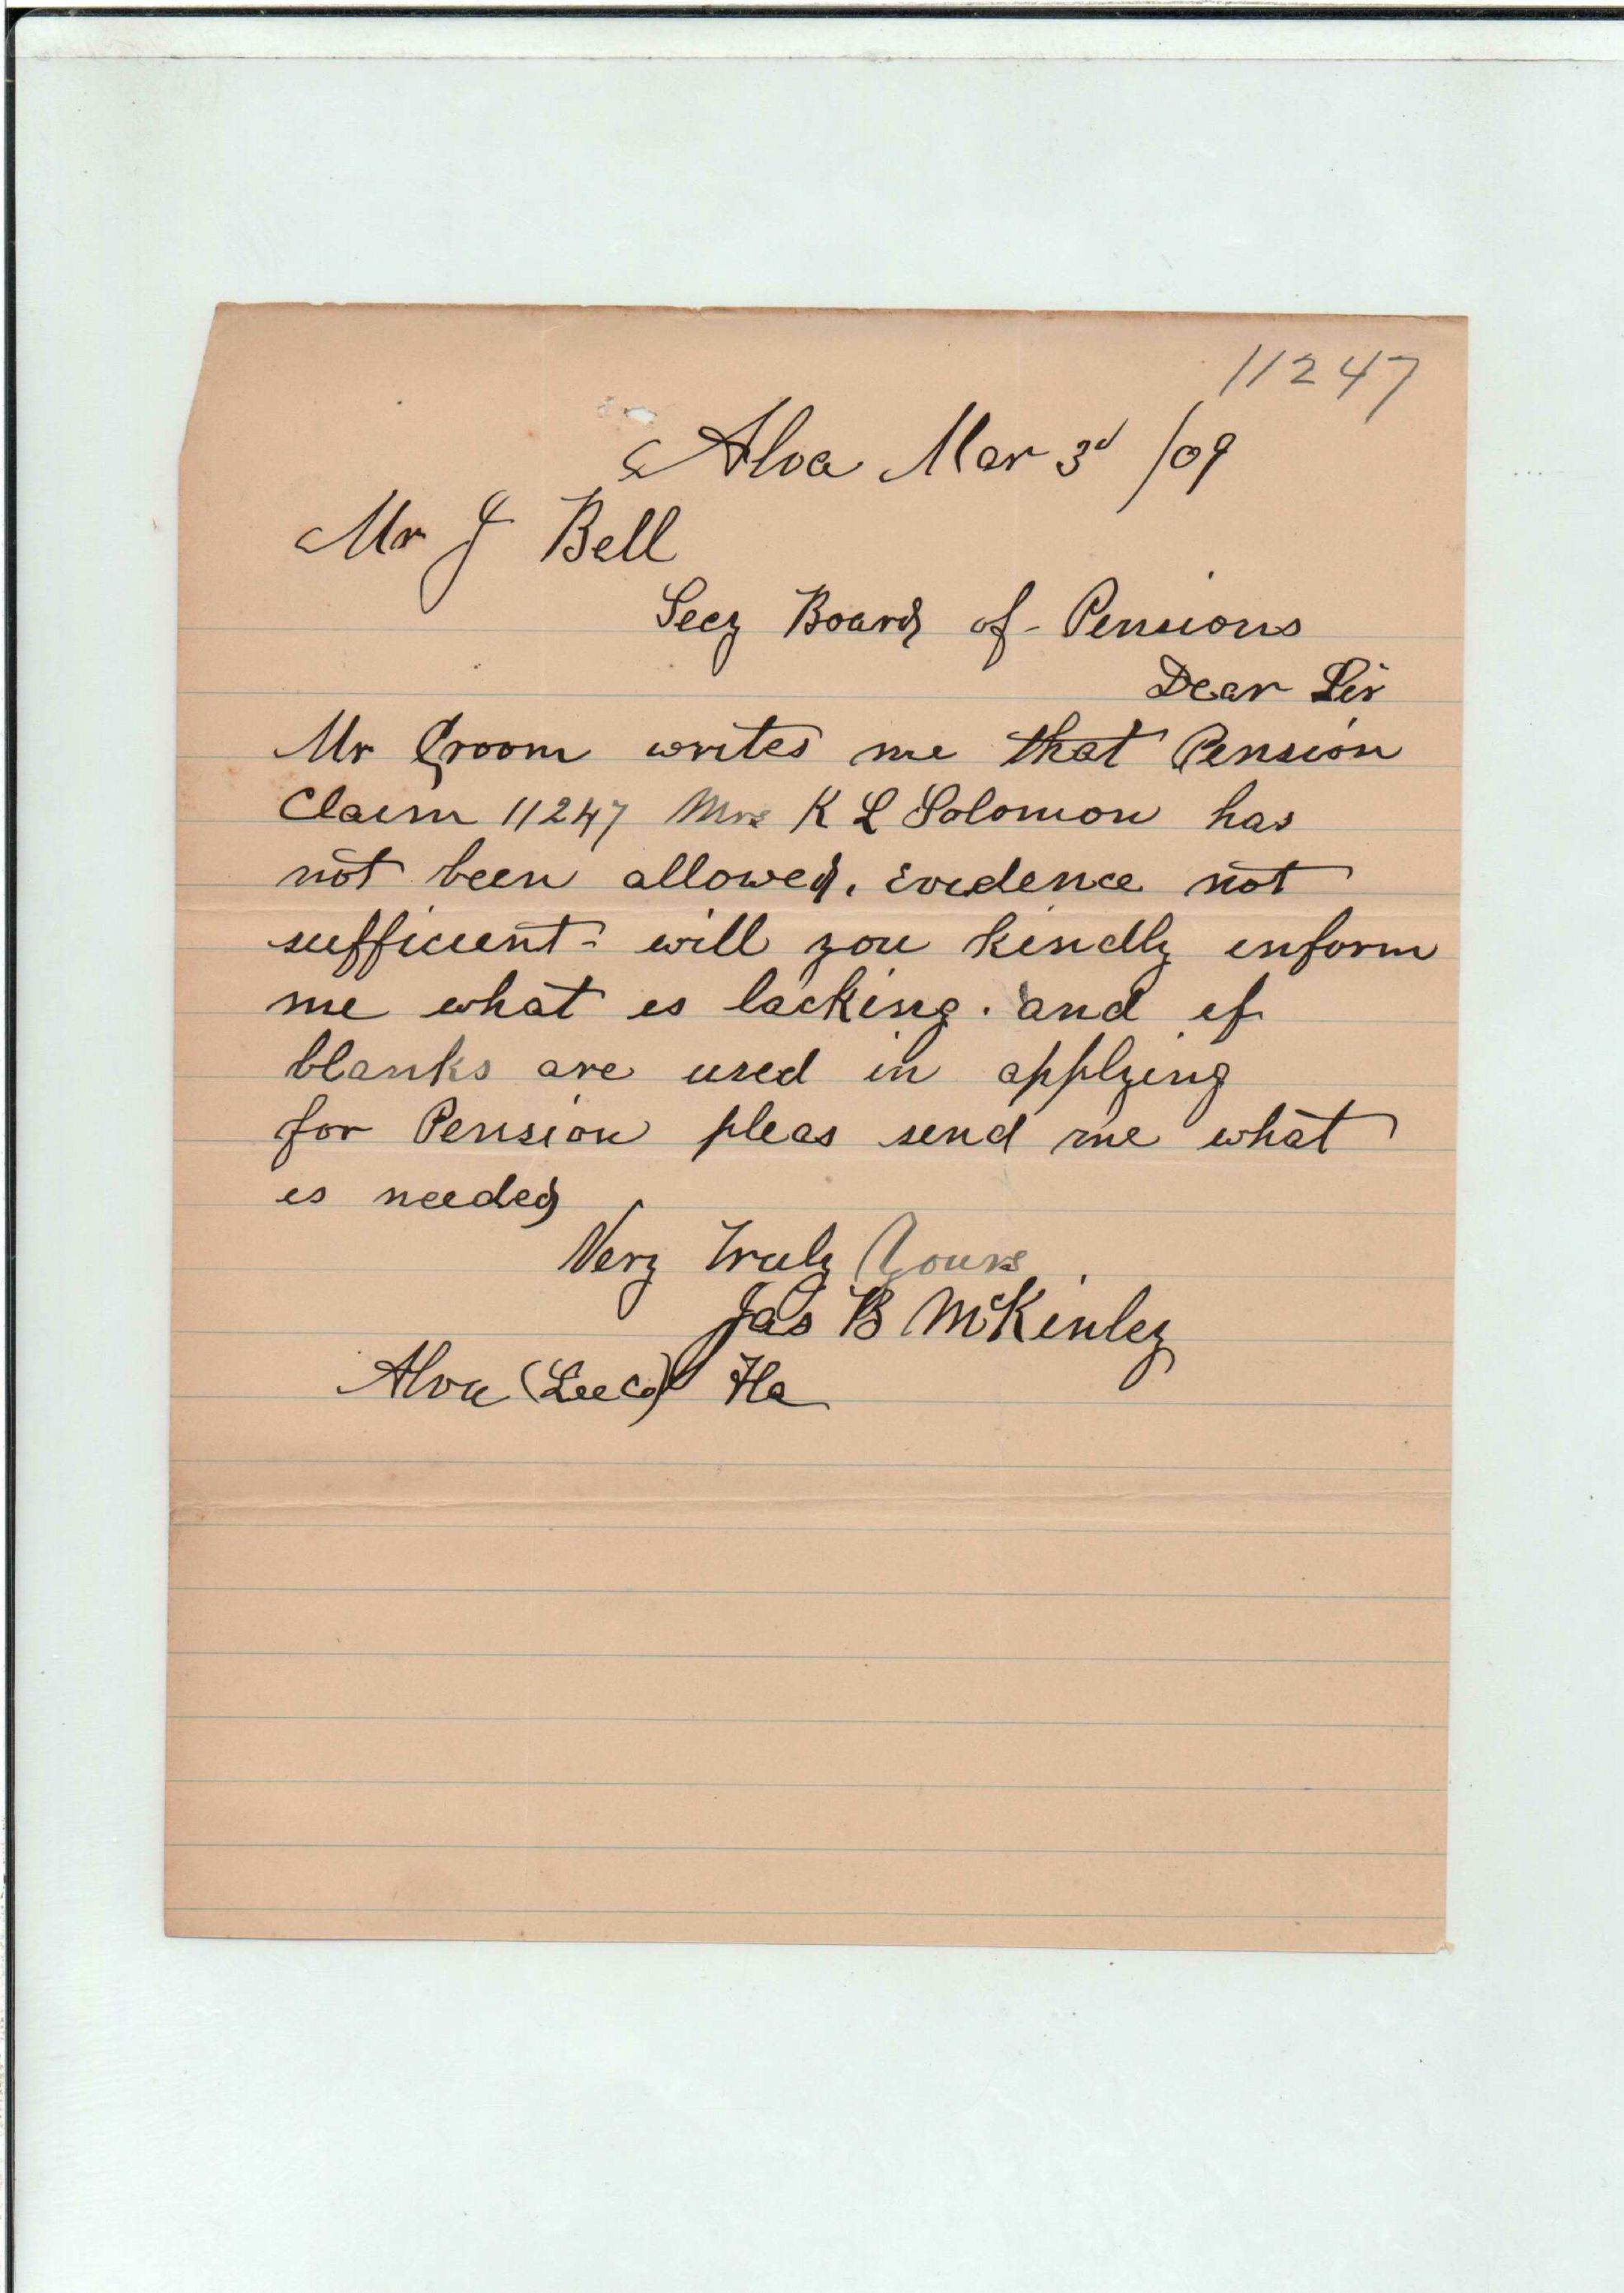 11247
Alva Mar 3d /09
Mr J Bell
Secy Board of Pensions
Dear Sir
Mr Croom writes me that Pension
Claim 11247 Mrs K L Solomon has
not been allowed. Evidence not
sufficient - will you kindly inform
me what is lacking. and if
blanks are used in applying
for Pension pleas send me what
is needed
Very Truly Yours
Jas B McKinley
Alva (Lee Co) Fla